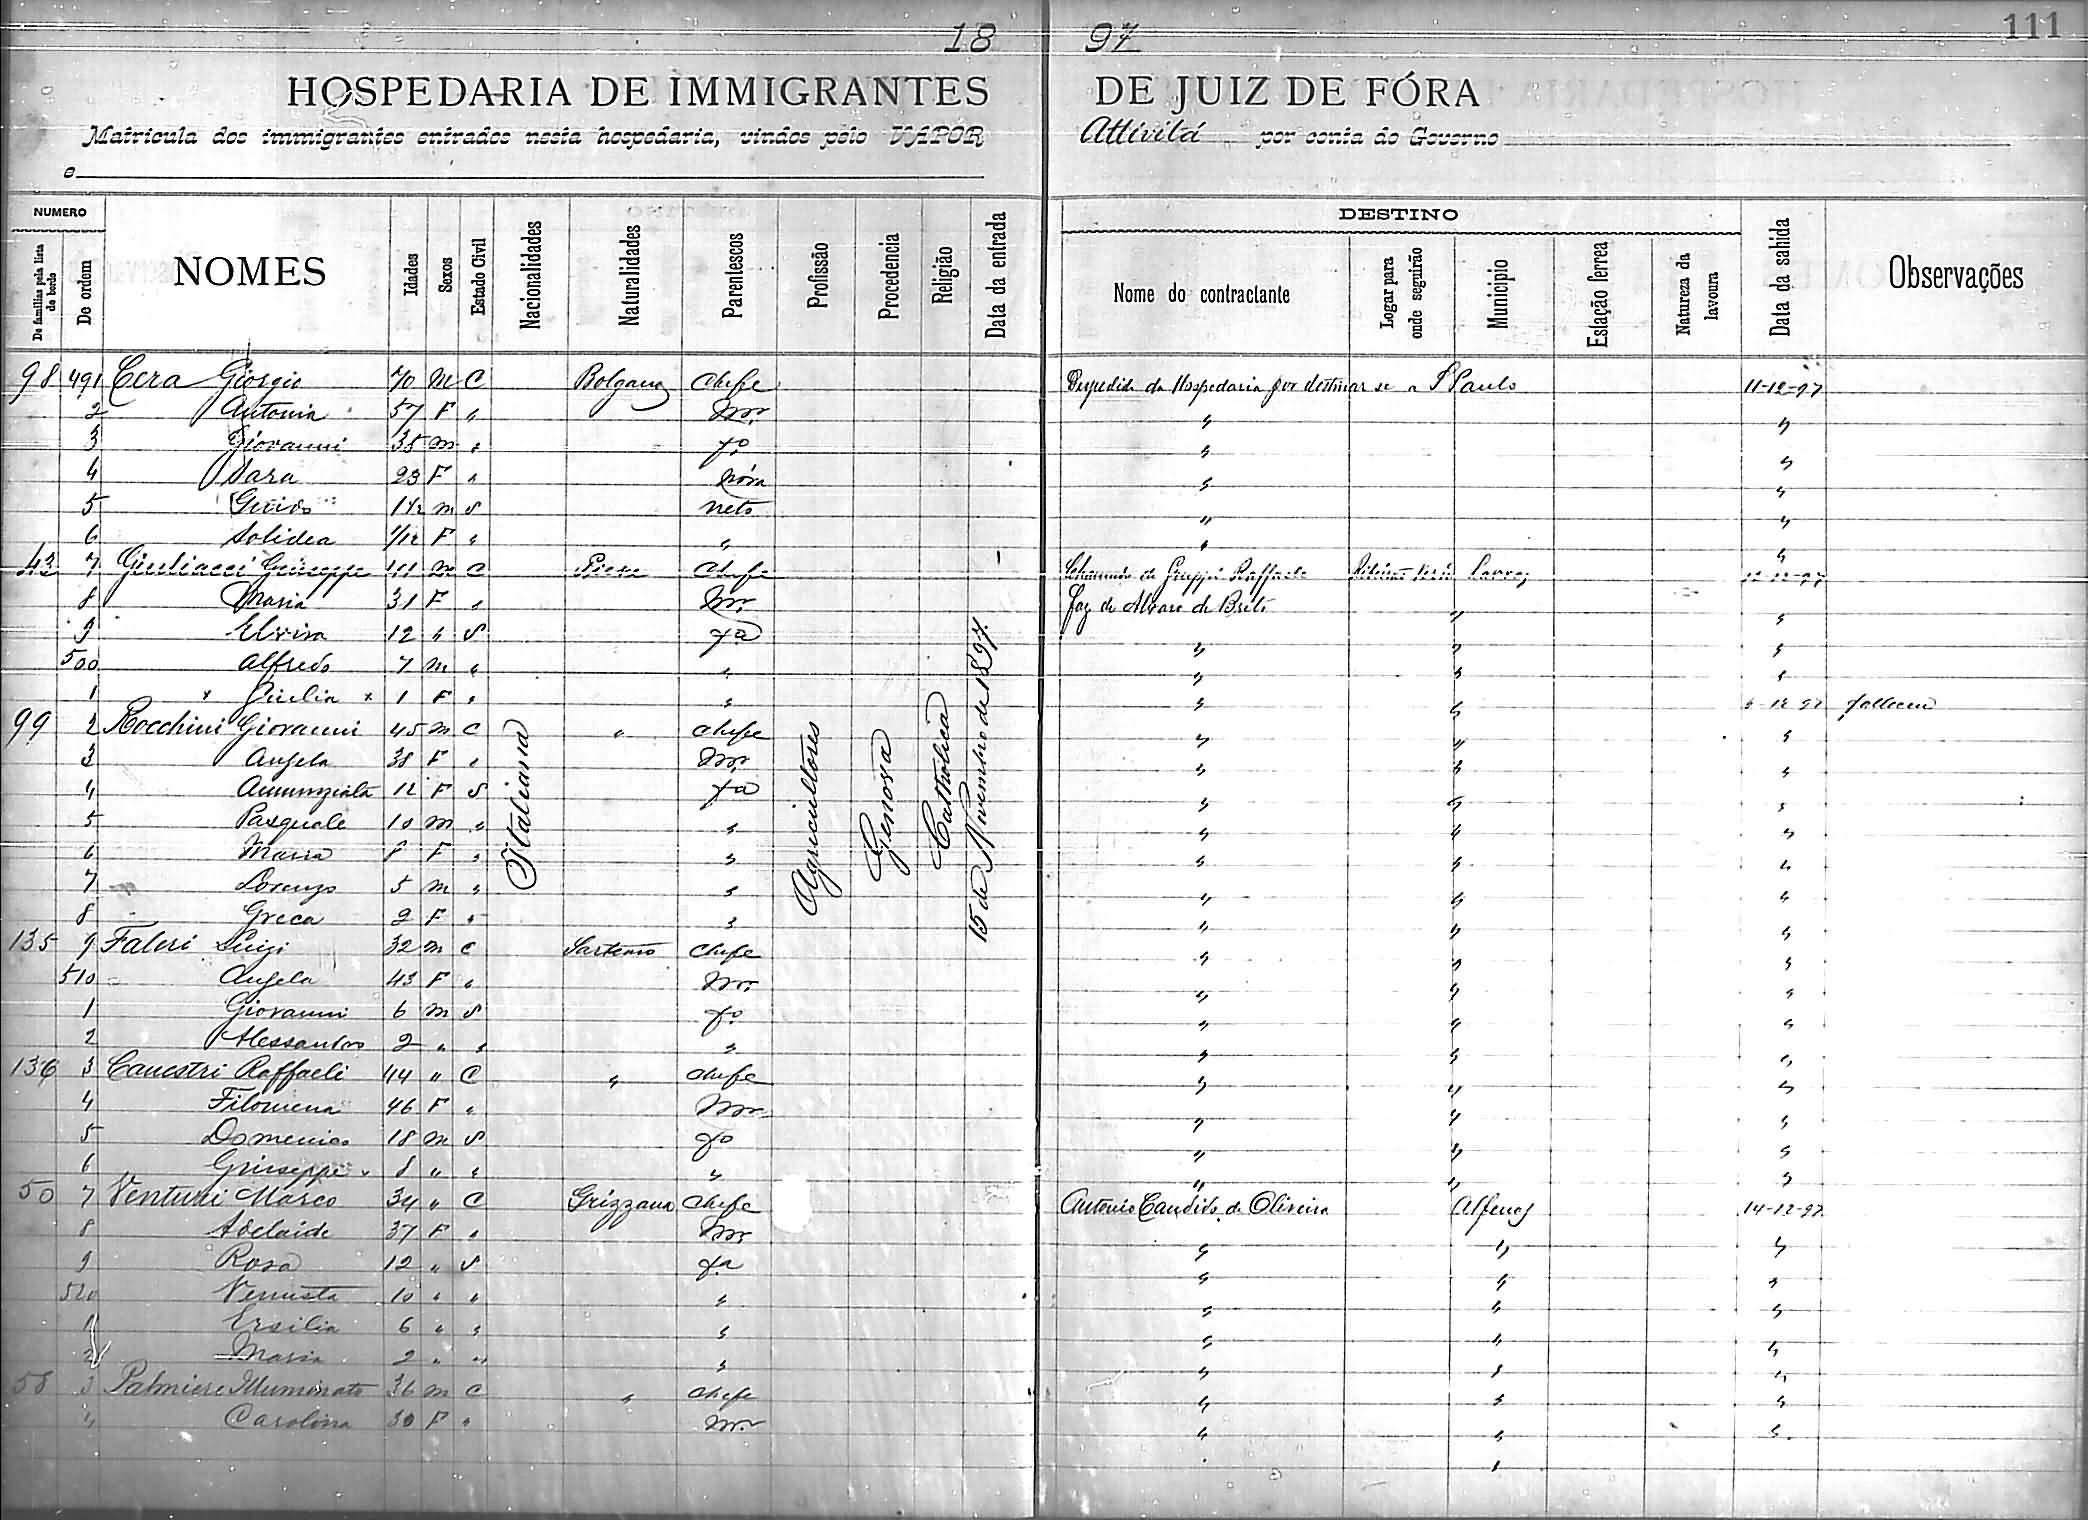 18 97 111
HOSPEDARIA DE IMMIGRANTES DE JUIZ DE FÓRA
Matricula dos immigrantes entrados nesta hospedaria, vindos pelo VAPOR Attivitá por conta do Governo
e
NUMERO DESTINO
De familias pela lista de bordo De ordem NOMES Idades Sexos Estado Civil Nacionalidades Naturalidades Parentescos Profissão Procedencia Religião Data da entrada Nome do contractante Logar para onde seguirão Municipio Estação ferrea Natureza da lavoura Data da sahida Observações
98 491 Cera Giorgio 70 M C Chefe da Hospedaria por destinar se a S Paulo 11-12-97
2 Antonia 57 F " Mr. " "
3 Giovanni 35 m " fo " "
4 Sara 23 F " nóra " "
5 Guido m S neto " "
6 Solidea F " " " "
43 7 Giuliacci Giuseppe 41 m C Chefe Raffaele Lavras 12-12-97
8 Maria 31 F " Mr. Faz de Alvaro de Brito " "
9 Elvira 12 " S fa " " "
500 Alfredo 7 m " " " " "
1 x Giulia x 1 F " " " " falleceu
99 2 Rocchini Giovanni 45 m C " Chefe " " "
3 Angela 38 F " Mr " " "
4 Annunziata 12 F S fa " " "
5 Pasquale 10 m " " " " "
6 Maria 8 F " " " " "
7 Lorenzo 5 m " " " " "
8 Greca 2 F " " " " "
Italiana Agricultores Genova Catholica 15 de Novembro de 1897
135 9 Faleri Luigi 32 m C Sarteano Chefe " " "
510 Angela 43 F " Mr. " " "
1 Giovanni 6 m S fo " " "
2 Alessandro 2 " " " " " "
136 3 Canestri Raffaeli 44 " C " Chefe " " "
4 Filomena 46 F " Mr. " " "
5 Domenico 18 m S fo " " "
6 Giuseppe 8 " " " " " "
50 7 Venturi Marco 34 " C Grizzana Chefe Antonio Candido de Oliveira Alfenas 14-12-97
8 Adelaide 37 F " Mr " " "
9 Rosa 12 " S fa " " "
520 Venusta 10 " " " " " "
1 Ersilia 6 " " " " " "
2 Maria 2 " " " " " "
58 3 Palmiere Illuminato 36 m C " Chefe " " "
4 Carolina 30 F " Mr. " " "